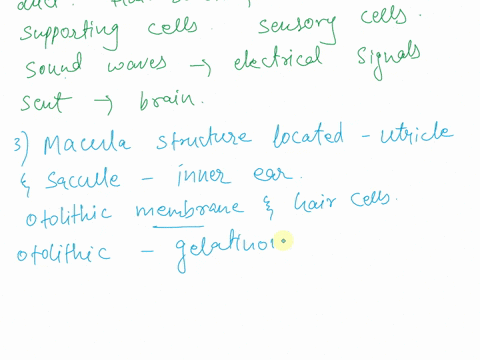 supporting cells. sensory cells.
sound waves → electrical signals
sent → brain.
3) Macula structure located - utricle
& saccule - inner ear.
otolithic membrane & hair cells.
otolithic - gelatino